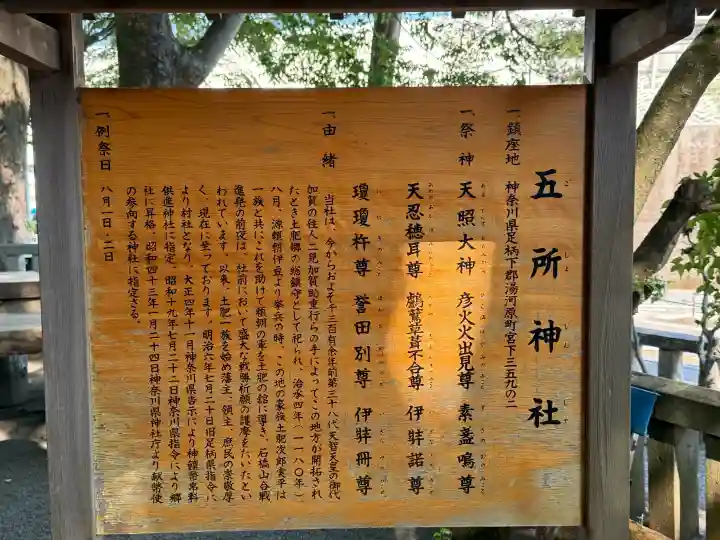 五所神社
ごしょじんじゃ
一、鎮座地 神奈川県足柄下郡湯河原町宮下三五九の二
一、祭神 天照大神 彦火火出見尊 素盞嗚尊
天忍穗耳尊 鸕鶿草葺不合尊 伊弉諾尊
瓊瓊杵尊 誉田別尊 伊弉冊尊
一、由緒
当社は、今からおよそ千三百有余年前第三十八代天智天皇の御代
加賀の住人二見加賀助重行らの手によって、この地方が開拓され
たとき土肥郷の総鎮守として祀られ、治承四年(一一八〇年)
八月、源頼朝伊豆より挙兵の時、この地の豪族土肥次郎実平は
一族と共にこれを助けて頼朝の軍を土肥の舘に導き、石橋山合戦
進発の前夜は、社前において盛大な戦勝祈願の護摩をたいたとい
われています。以来、土肥一族を始め藩主、領主、庶民の崇敬厚
く、現在に至っております。明治六年七月二十日旧足柄県指令に
より村社となり、大正四年十一月神奈川県告示により神饌幣帛料
供進神社に指定、昭和十九年七月二十二日神奈川県指令により郷
社に昇格、昭和四十三年一月二十四日神奈川県神社庁より献幣使
の参向する神社に指定さる。
一、例祭日 八月一日、二日